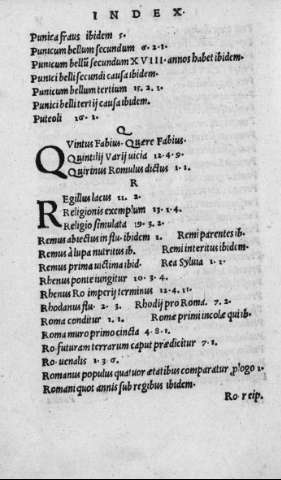 INDEX.
Punica fraus ibidem 5.
Punicum bellum secundum 6.2.1.
Punicum bellũ secundum XVIII. annos habet ibidem.
Punici belli secundi causa ibidem.
Punicum bellum tertium 15.2.1.
Punici belli tertij causa ibidem.
Puteoli 16.1.
Q
QVintus Fabius. Quære Fabius.
Quintilij Varij uicia 12.4.9.
Quirinus Romulus dictus 1.1.
R
REgillus lacus 11.2.
Religionis exemplum 13.1.4.
Religio simulata 19.3.2.
Remus abiectus in flu. ibidem 1. Remi parentes ib.
Remus à lupa nutritus ib. Remi interitus ibidem.
Remus prima uictima ibid. Rea Syluia 1.1.
Rhenus ponte iungitur 10.3.4.
Rhenus Ro imperij terminus 12.4.11.
Rhodanus flu. 2.3. Rhodij pro Roma. 7.2.
Roma conditur 1.1. Romæ primi incolæ qui ib.
Roma muro primo cincta 4.8.1.
Ro. futuram terrarum caput prædicitur 7.1.
Ro. uenalis 1.3.6.
Romanus populus quatuor ætatibus comparatur ꝓlogo 1.
Romani quot annis sub regibus ibidem.
Ro. reip.